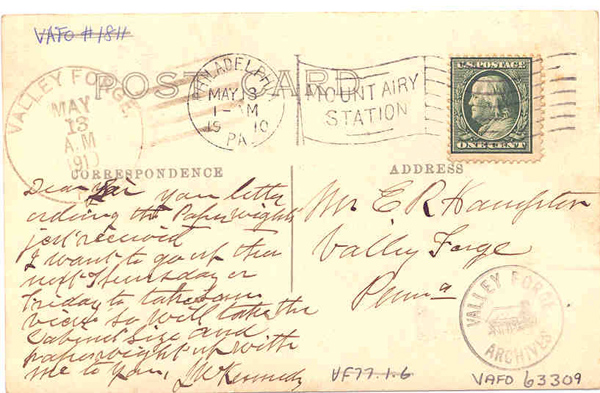 VAFO #1811
POST CARD
VALLEY FORGE
MAY
13
A.M
1910
PHILADELPHIA
MAY 3
1-M
19 10
PA.
MOUNT AIRY
STATION
U.S. POSTAGE
ONE CENT
CORRESPONDENCE
Dear Sir you letter
ording the Paperweights
just received
I want to go up there
next Thursday or
Friday to take some
views so will take the
Cabinet size and
paperweight up with
me to you, J W Kennedy
ADDRESS
Mr E R Hampton
Valley Forge
Penna
VALLEY FORGE
ARCHIVES
VF77.1.6
VAFO 63309